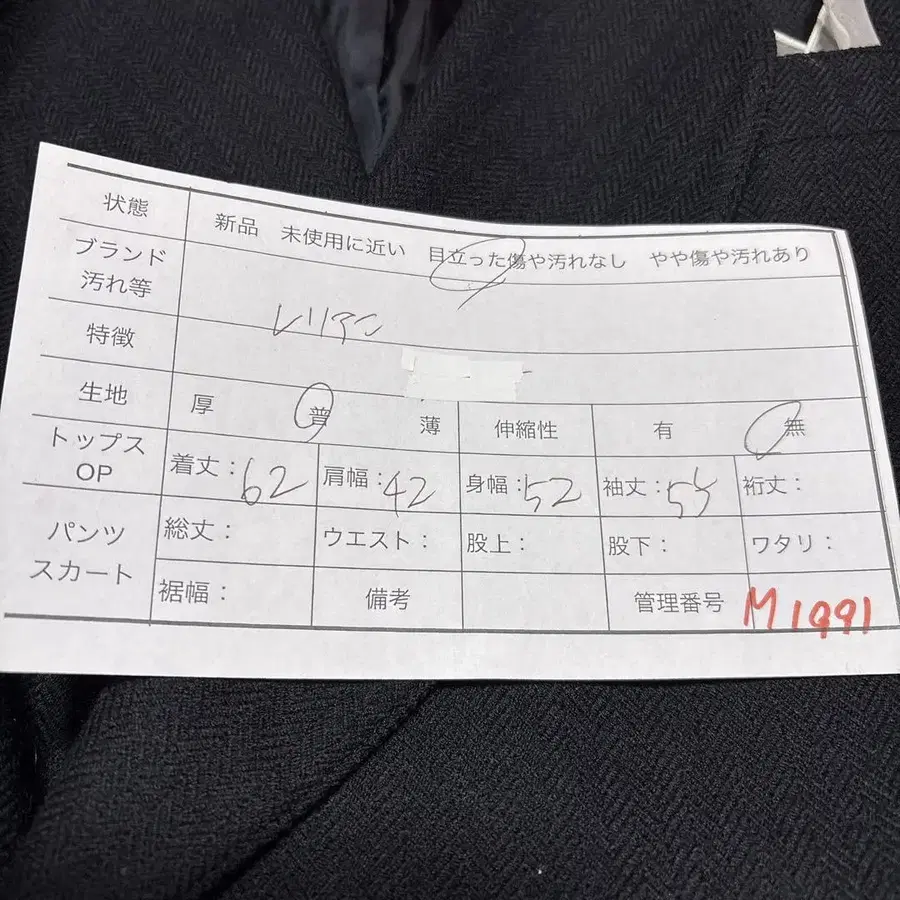 状態 新品 未使用に近い 目立った傷や汚れなし やや傷や汚れあり
ブランド
汚れ等
レリアン
特徴
生地 厚 普 薄 伸縮性 有 無
トップス
OP
着丈：62 肩幅：42 身幅：52 袖丈：55 裄丈：
パンツ
スカート
総丈： ウエスト： 股上： 股下： ワタリ：
裾幅： 備考 管理番号 M1991